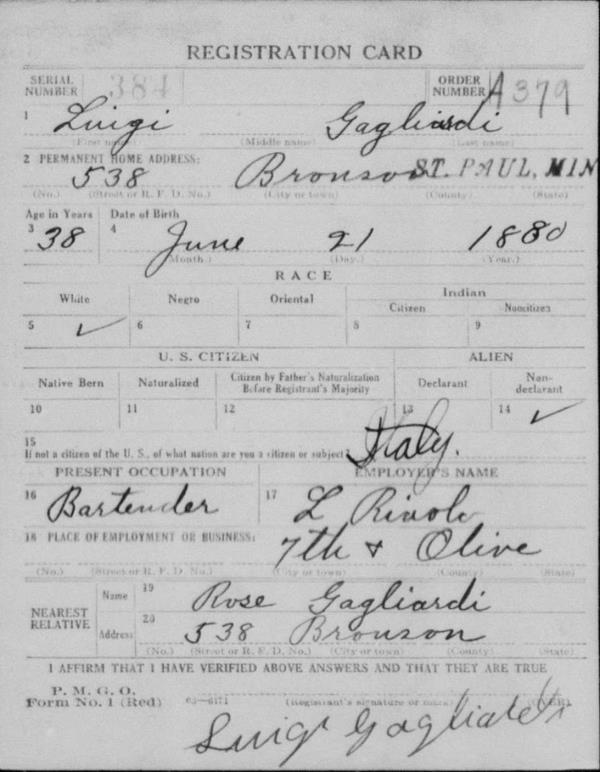 REGISTRATION CARD
SERIAL NUMBER 384 ORDER NUMBER A379
1 Luigi Gagliardi
(First name) (Middle name) (Last name)
2 PERMANENT HOME ADDRESS:
538 Bronson ST. PAUL, MIN
(No.) (Street or R. F. D. No.) (City or town) (County) (State)
Age in Years Date of Birth
3 38 4 June 21 1880
(Month.) (Day.) (Year.)
RACE
White Negro Oriental Indian
Citizen Noncitizen
5 ✓ 6 7 8 9
U. S. CITIZEN ALIEN
Native Born Naturalized Citizen by Father's Naturalization Before Registrant's Majority Declarant Non-declarant
10 11 12 13 14 ✓
15 If not a citizen of the U. S., of what nation are you a citizen or subject? Italy.
PRESENT OCCUPATION EMPLOYER'S NAME
16 Bartender 17 L
18 PLACE OF EMPLOYMENT OR BUSINESS:
7th + Olive
(No.) (Street or R. F. D. No.) (City or town) (County) (State)
NEAREST RELATIVE Name 19 Rose Gagliardi
Address 20 538 Bronson
(No.) (Street or R. F. D. No.) (City or town) (County) (State)
I AFFIRM THAT I HAVE VERIFIED ABOVE ANSWERS AND THAT THEY ARE TRUE
P. M. G. O.
Form No. 1 (Red) 03—6171 (Registrant's signature or mark) (OVER)
Luigi Gagliardi